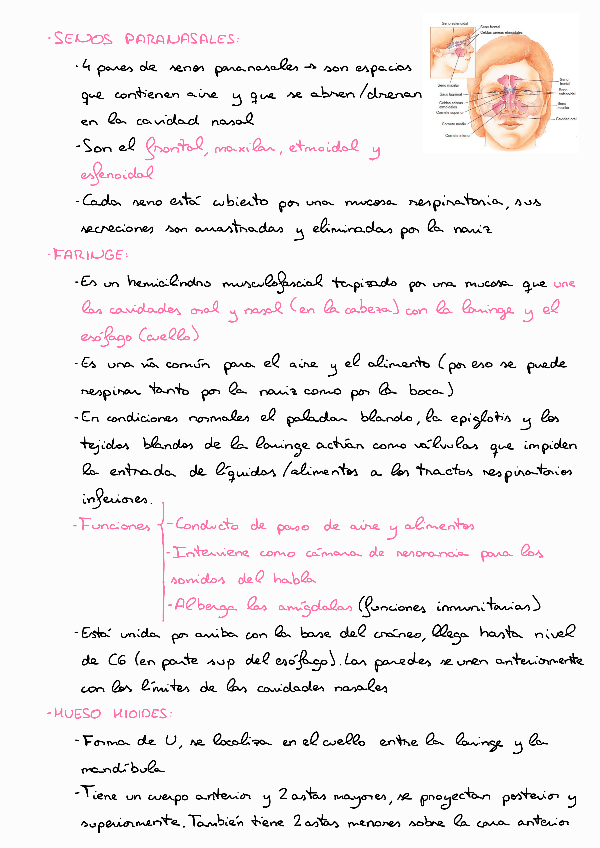 ·SENOS PARANASALES:
·4 pares de senos paranasales → son espacios
que contienen aire y que se abren/drenan
en la cavidad nasal
·Son el frontal, maxilar, etmoidal y
esfenoidal
·Cada seno está cubierto por una mucosa respiratoria, sus
secreciones son arrastradas y eliminadas por la nariz
Seno esfenoidal
Seno frontal
Celdas aéreas etmoidales
Seno maxilar
Seno frontal
Celdas aéreas etmoidales
Cornete superior
Cornete medio
Cornete inferior
Seno frontal
Seno esfenoidal
Seno maxilar
Cavidad oral
·FARINGE:
·Es un hemicilindro musculofascial tapizado por una mucosa que une
las cavidades oral y nasal (en la cabeza) con la laringe y el
esófago (cuello)
·Es una vía común para el aire y el alimento (por eso se puede
respirar tanto por la nariz como por la boca)
·En condiciones normales el paladar blando, la epiglotis y los
tejidos blandos de la laringe actúan como válvulas que impiden
la entrada de líquidos/alimentos a los tractos respiratorios
inferiores.
-Funciones
-Conducto de paso de aire y alimentos
-Interviene como cámara de resonancia para los
sonidos del habla
-Alberga las amígdalas (funciones inmunitarias)
-Está unida por arriba con la base del cráneo, llega hasta nivel
de C6 (en parte sup del esófago). Las paredes se unen anteriormente
con los límites de las cavidades nasales
-HUESO HIOIDES:
-Forma de U, se localiza en el cuello entre la laringe y la
mandíbula
-Tiene un cuerpo anterior y 2 astas mayores, se proyectan posterior y
superiormente. También tiene 2 astas menores sobre la cara anterior